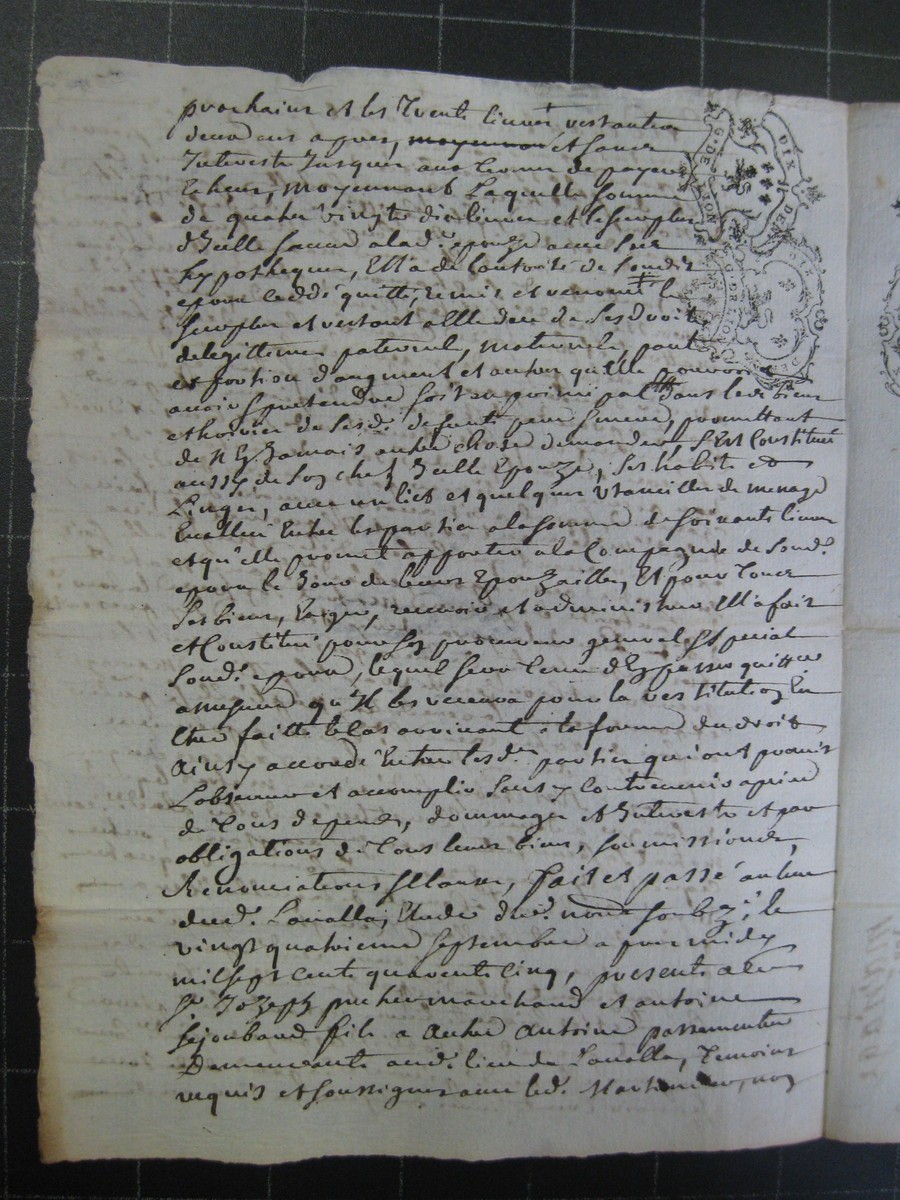 prochaine et les trente livres restantes
deux ans apres, moyennant et sans
Interests Jusques aux termes de payer
Echeus, moyennant Laquelle somme
de quatre vingts dix livres et le surplus
d'Icelle sauve a lad.e epouze avec ses
hypotheques, Ell'a de l'autorité de Sond.
epoux ceddé quitté, remis et renoncé le
surplus et restant a elle deu de Ses droits
de legittime paternels, maternels, part
et portion d'augment et autres qu'elle pouvoit
avoir & pretendre soit en principal dans les biens
et hoirie de Sesd. defunts pere & mere, promettant
de N'En Jamais autre chose demander, S'est Constitué
aussy de Son chef Icelle Epouze, Ses habits et
Linges, avec un lict et quelques Utancilles de menage
Evallué Entre les parties a la somme de soixante livres
et qu'elle promet apporter a la Compagnie de Sond.
epoux le Jour de leurs Epouzailles, Et pour tous
Ses biens, Exiger, recevoir et administrer Ell'a fait
et Constitué pour Son procureur general & special
Sond. epoux, lequel sera tenu d'En passer quittance
a mesure qu'Il les recevra pour la restitution En
Etre faitte le Cas arrivant a la forme du droit
Ainsy accordé Entre lesd. parties qui ont promis
L'observer et accomplir Sans y Contrevenir a peine
de tous depens, dommages et Interests et par
obligations de tous leurs biens, soumissions,
Renonciations & Clauses, fait et passé au lieu
dud. Lavalla, Etude dud. no.re soubz.né le
vingt quatrieme septembre apres midy
mil sept cent quarente cinq, presents a ce
S.r Jozeph pucher marchand et antoine
sejoubard fils a autre Antoine passementier
Demeurants aud. lieu de Lavalla, temoins
requis et soussignez avec led. non
G. DE LYON
DIX DEN